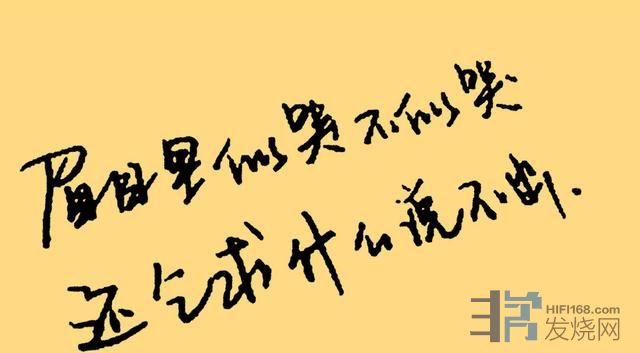 眉目里似哭不似哭
还乞求什么说不出.
HIFI168.com
发烧网